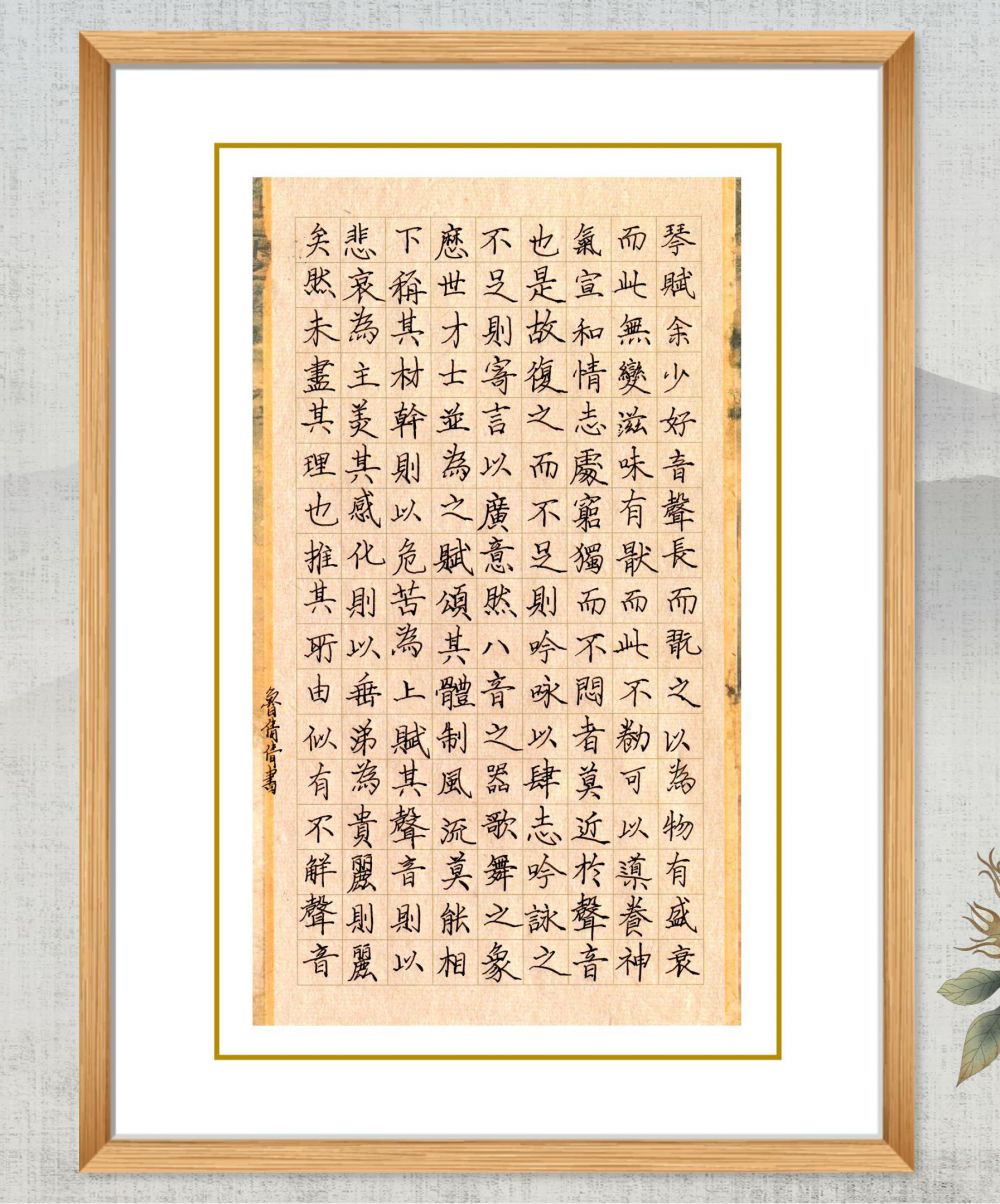 琴賦余少好音聲長而翫之以為物有盛衰
而此無變滋味有猒而此不勌可以導養神
氣宣和情志處窮獨而不悶者莫近於聲音
也是故復之而不足則吟咏以肆志吟詠之
不足則寄言以廣意然八音之器歌舞之象
歷世才士並為之賦頌其體制風流莫能相
下稱其材幹則以危苦為上賦其聲音則以
悲哀為主美其感化則以垂涕為貴麗則麗
矣然未盡其理也推其所由似有不解聲音
魯倩倩書